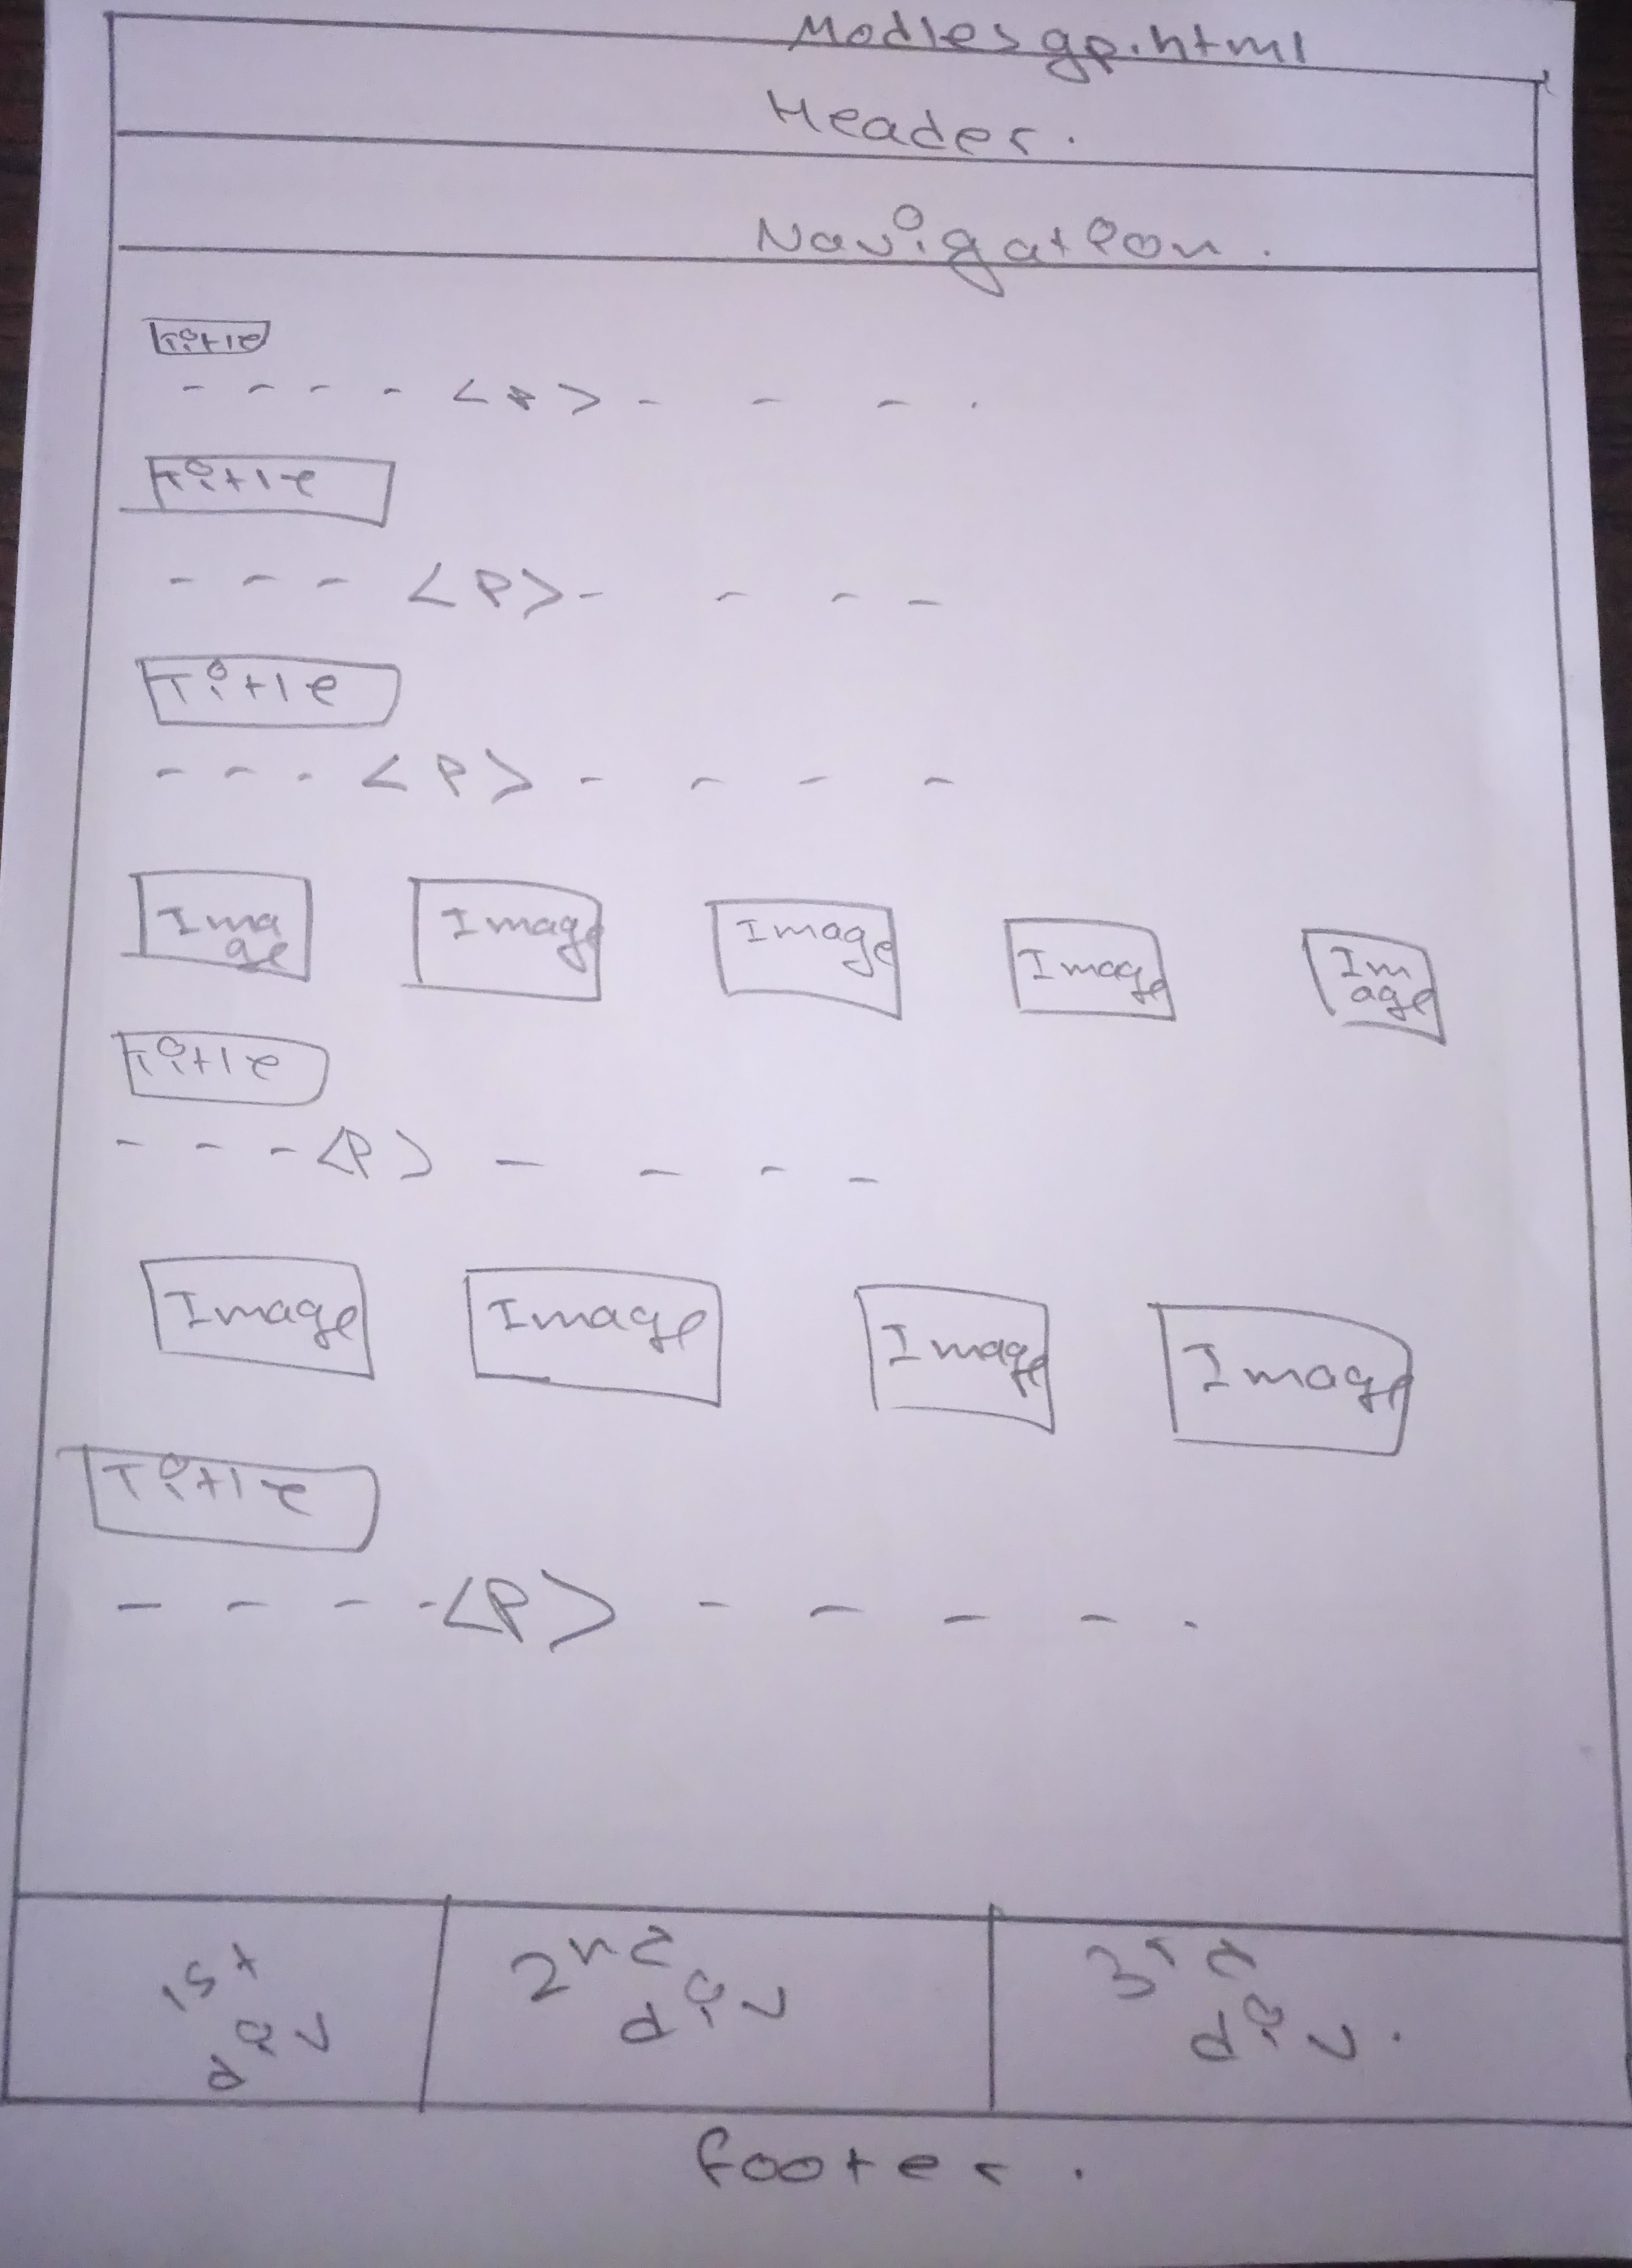 Modlesgp.html
Header.
Navigation.
Title
- - - - < > - - - .
Title
- - - <P> - - - -
Title
- - - <P> - - - -
Image Image Image Image Image
Title
- - - <P> - - - -
Image Image Image Image
Title
- - - - <P> - - - - .
1st div 2nd div 3rd div.
footer.